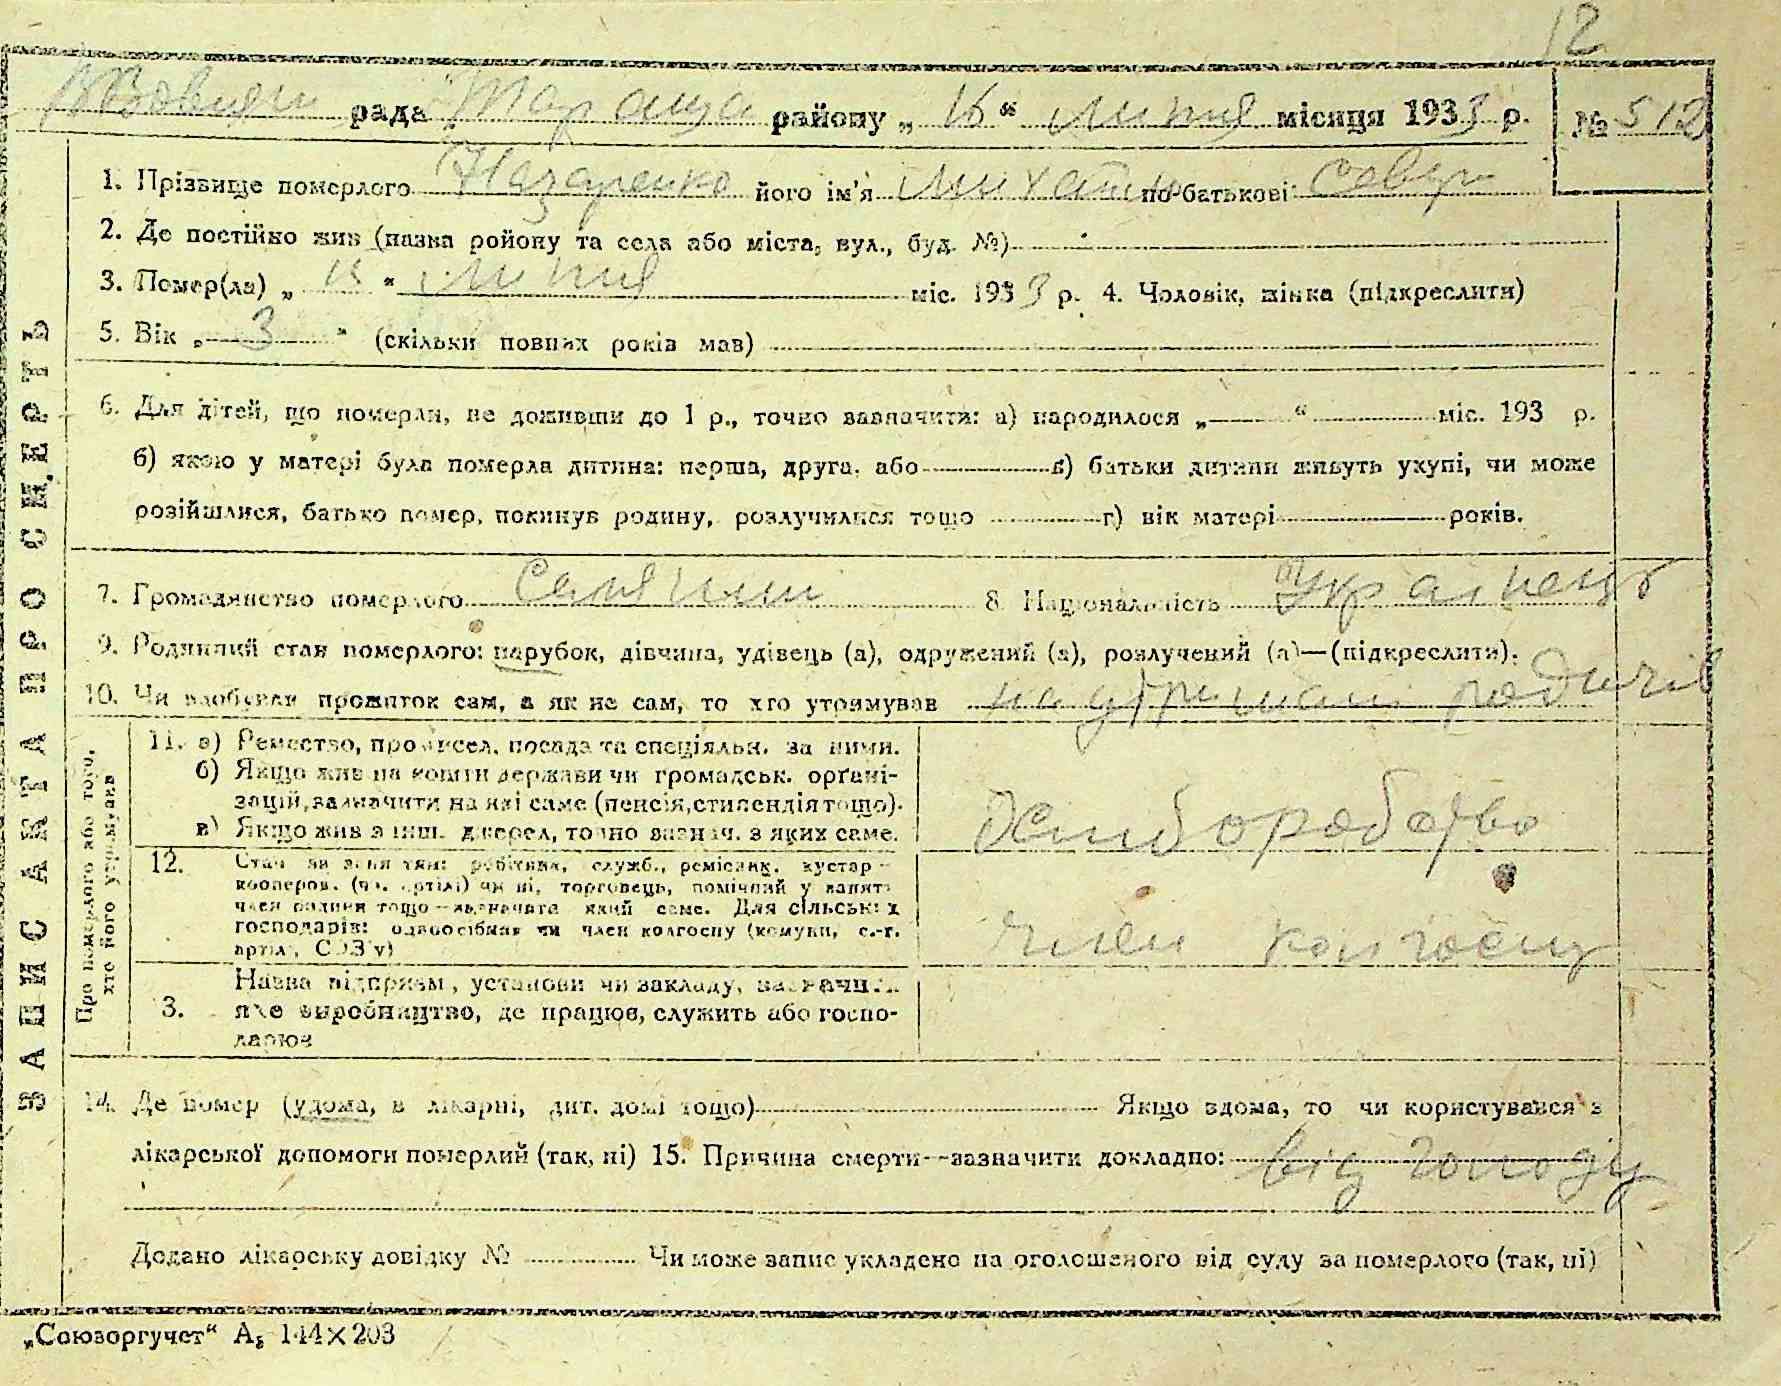 12
рада Тараща району „ 16 “ липня місяця 1933 р. № 512
1. Прізвище померлого Назаренко його ім'я Михайло по-батькові
2. Де постійко жив (назва ройону та села або міста, вул., буд. №)
3. Помер(ла) „ “ липня міс. 1933 р. 4. Чоловік, жінка (підкреслити)
5. Вік „ 3 “ (скільки повних років мав)
6. Для дітей, що померли, не доживши до 1 р., точно зазначити: а) народилося „ “ міс. 193 р.
б) якою у матері була померла дитина: перша, друга, або в) батьки дитини живуть укупі, чи може
розійшлися, батько помер, покинув родину, розлучилися тощо г) вік матері років.
7. Громадянство померлого 8. Національність Украінець
9. Родинний стан померлого: парубок, дівчина, удівець (а), одружений (а), розлучений (а)—(підкреслити).
10. Чи здобував прожиток сам, а як не сам, то хто утримував на утримані родичів
11. а) Ремество, промисел, посада та спеціяльн. за ними.
б) Якщо жив на кошти держави чи громадськ. орґані-
зацій, зазначити на які саме (пенсія, стипендія тощо).
в) Якщо жив з інш. джерел, точно зазнач. з яких саме.
Хліборобство
12. Стан на занятті: робітник, служб., ремісник, кустар-
кооперов. (чл. артілі) чи ні, торговець, помічний у занят.
член родини тощо—зазначити який саме. Для сільських
господарів: одноосібник чи член колгоспу (комуни, с.-г.
артілі, СОЗ'у)
член колгоспу
3. Назва підприєм, установи чи закладу, зазначити
яке виробництво, де працює, служить або госпо-
дарює
14. Де помер (удома, в лікарні, дит. домі тощо) Якщо вдома, то чи користувався з
лікарської допомоги померлий (так, ні) 15. Причина смерти—зазначити докладно: від голоду
Додано лікарську довідку № Чи може запис укладено на оголошеного від суду за померлого (так, ні)
ЗАПИС АКТА ПРО СМЕРТЬ
Про померлого або того,
хто його утримував
„Союзоргучет“ А₅ 144×203